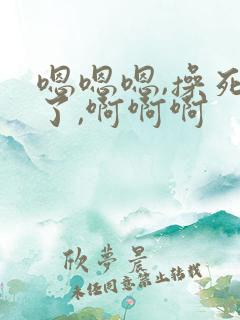 嗯嗯嗯,操死
了,啊啊啊
欣梦晨
未经同意禁止转载